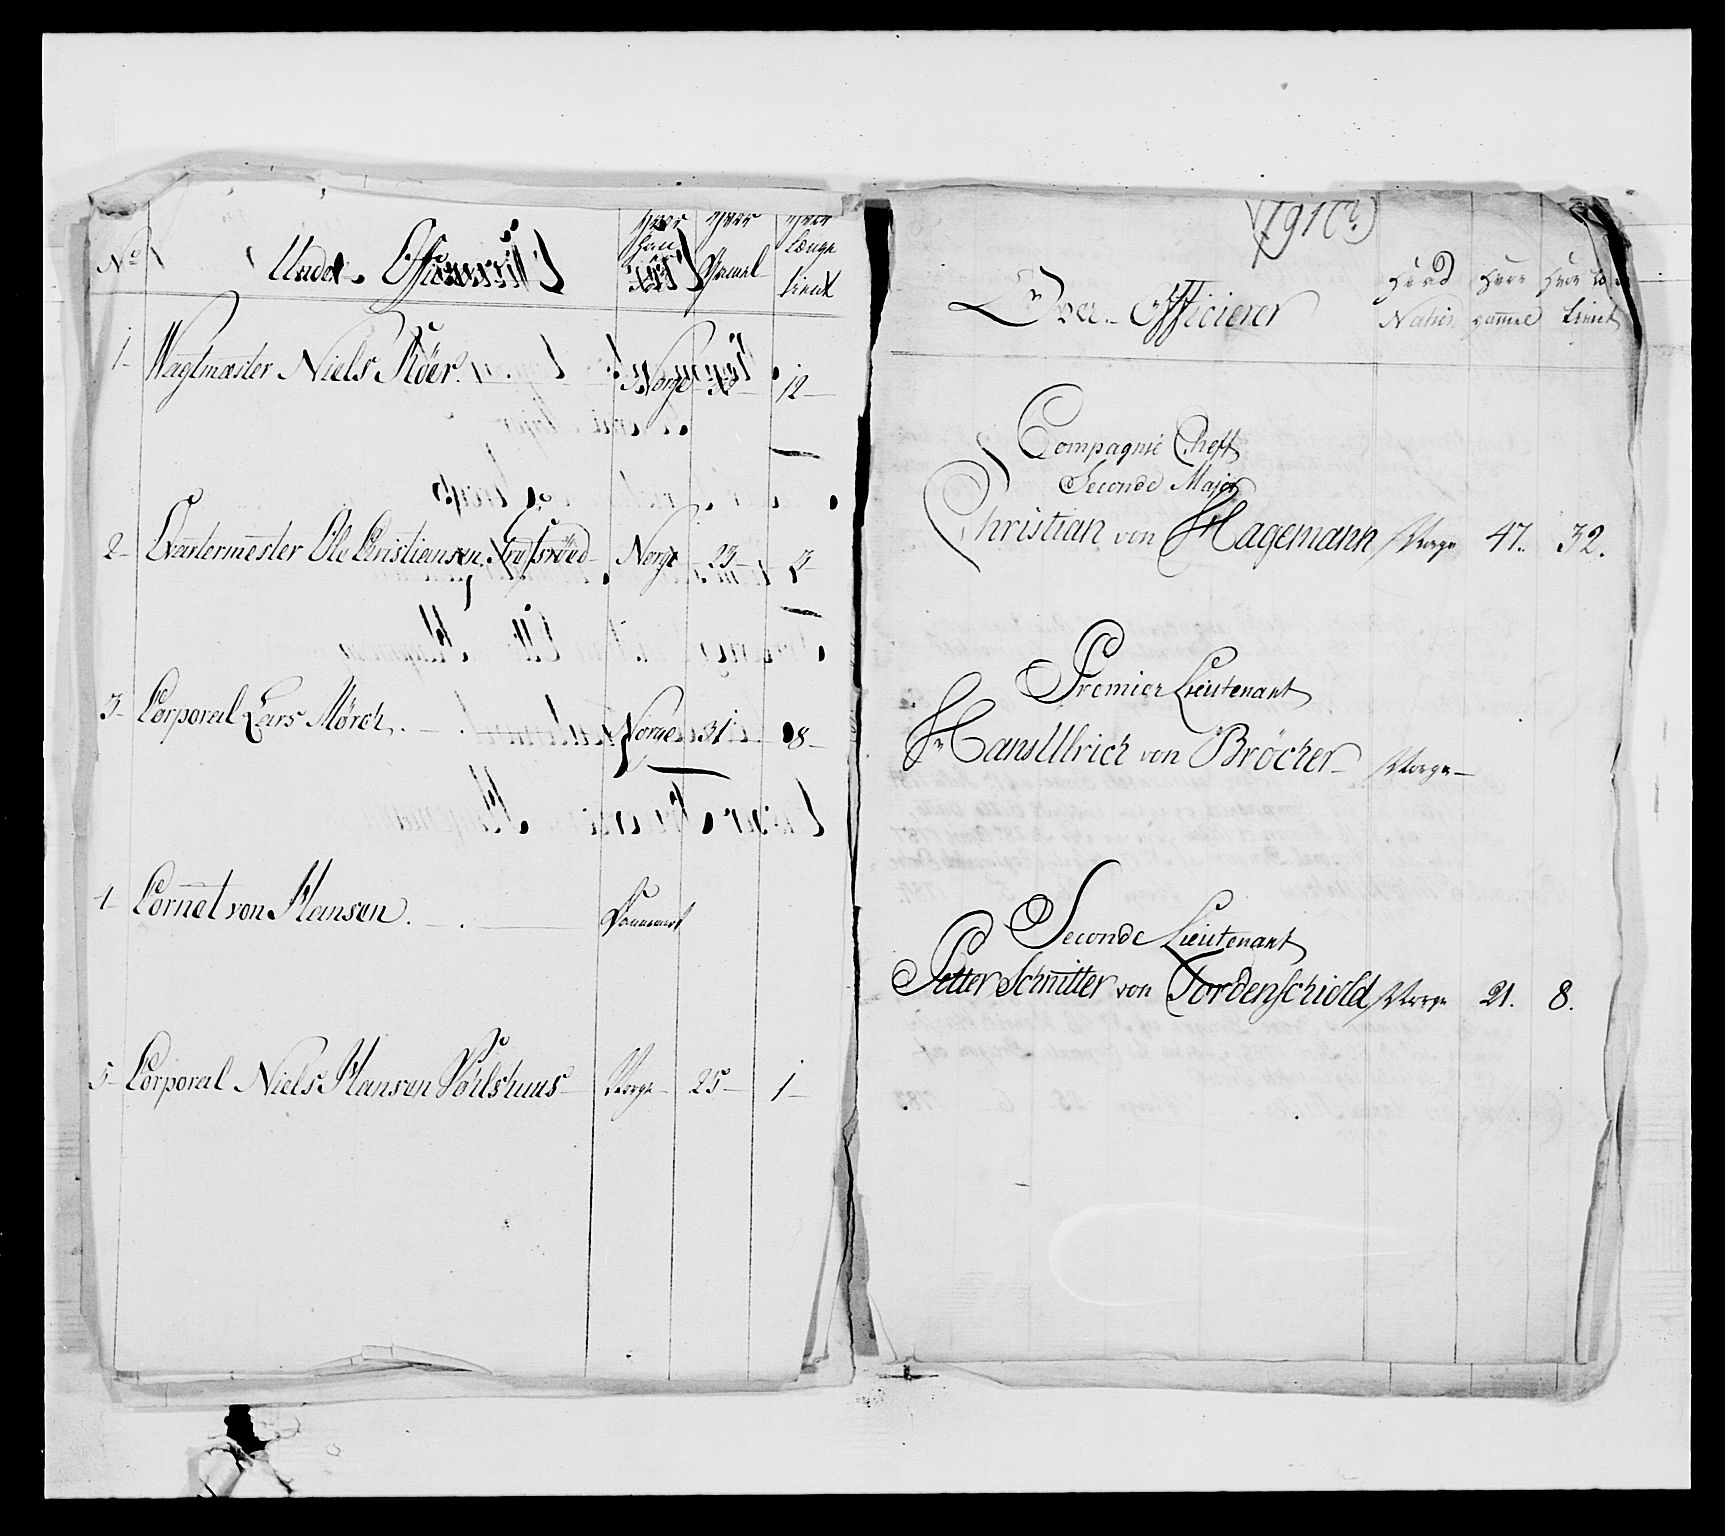 No
Under Officierer
Hvor
han
er
Hvor
Gamel
Hvor
Længe
tient
1- Wagtmester Niels Röer. Norge 12-
2- Qvartermester Ole Christiensen Norge 23- 3-
3- Corporal Lars Mörch. Norge 31 8-
4- Cornet von Hansen. Dannemark
5- Corporal Niels Hansen Norge- 25- 1-
Over Officierer
Hvad
Nation
Hvor
gammel
Hvor
tient
Compagnie Cheff
Seconde Major
Christian von Hagemann Norge 47. 32.
Premier Lieutenant
Hans Ulrich von Bröcker Norge-
Seconde Lieutenant
Petter Schnitter von Tordenschiold Norge 21. 8.